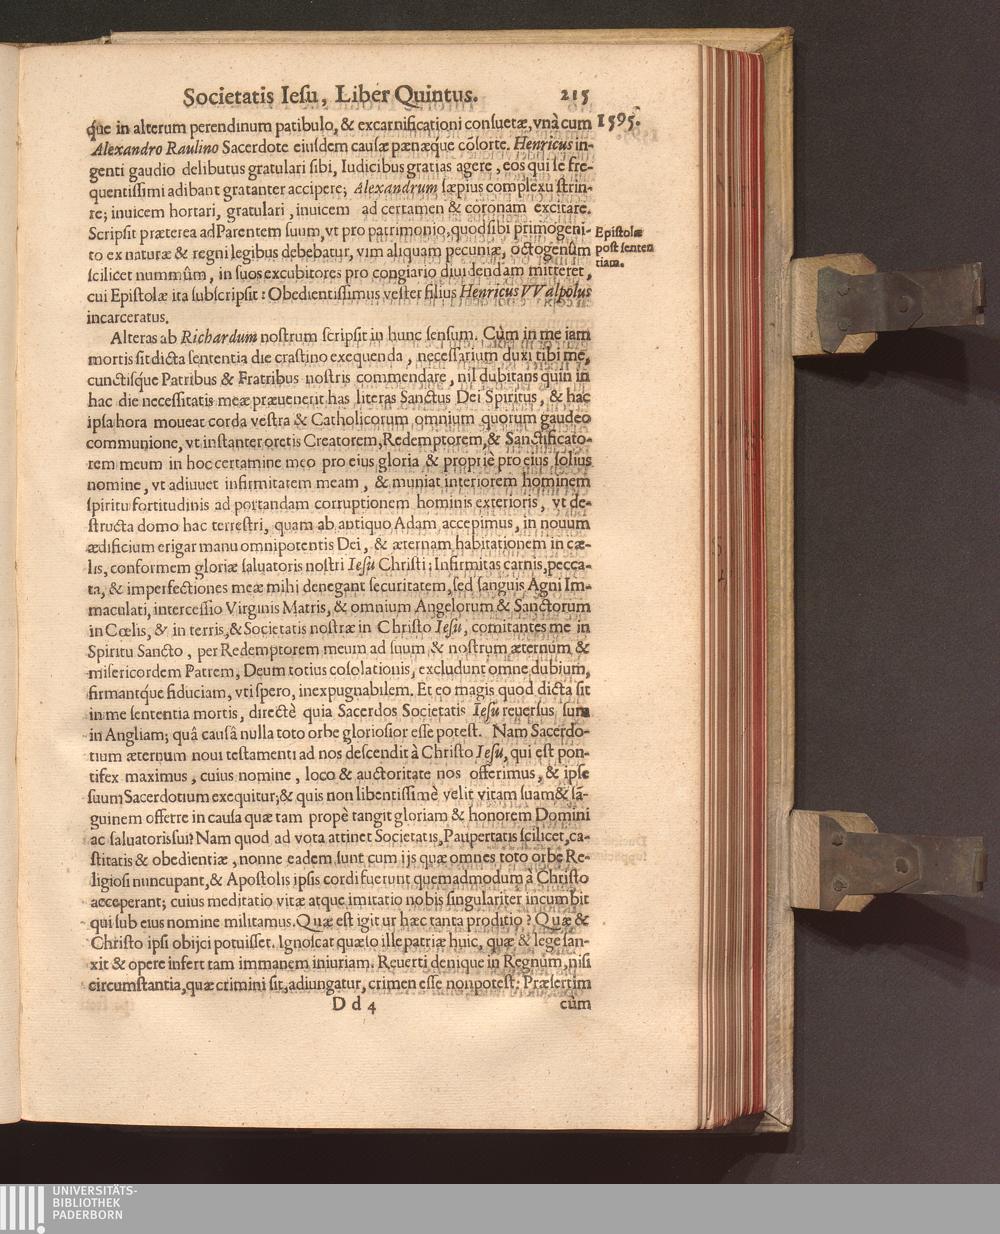 Societatis Iesu, Liber Quintus. 215
que in alterum perendinum patibulo, & excarnificationi consuetæ, vnà cum 1595.
Alexandro Raulino Sacerdote eiusdem causæ pænæque cosorte. Henricus in-
genti gaudio delibutus gratulari sibi, Iudicibus gratias agere, eos qui se fre-
quentissimi adibant gratanter accipere; Alexandrum sæpius complexu strin-
re; inuicem hortari, gratulari, inuicem ad certamen & coronam excitare.
Scripsit præterea ad Parentem suum, vt pro patrimonio, quod sibi primogeni-
to ex naturæ & regni legibus debebatur, vim aliquam pecuniæ, octogenûm
scilicet nummûm, in suos excubitores pro congiario diuidendam mitteret,
cui Epistolæ ita subscripsit: Obedientissimus vester filius Henricus VValpolus
incarceratus.
Epistolæ
post senten
tiam.
Alteras ab Richardum nostrum scripsit in hunc sensum. Cùm in me iam
mortis sit dicta sententia die crastino exequenda, necessarium duxi tibi me,
cunctisque Patribus & Fratribus nostris commendare, nil dubitans quin in
hac die necessitatis meæ præuenerit has literas Sanctus Dei Spiritus, & hac
ipsa hora moueat corda vestra & Catholicorum omnium quorum gaudeo
communione, vt instanter oretis Creatorem, Redemptorem, & Sanctificato-
rem meum in hoc certamine meo pro eius gloria & propriè pro eius solius
nomine, vt adiuuet infirmitatem meam, & muniat interiorem hominem
spiritu fortitudinis ad portandam corruptionem hominis exterioris, vt de-
structa domo hac terrestri, quam ab antiquo Adam accepimus, in nouum
ædificium erigar manu omnipotentis Dei, & æternam habitationem in cæ-
lis, conformem gloriæ saluatoris nostri Iesu Christi; Infirmitas carnis, pecca-
ta, & imperfectiones meæ mihi denegant securitatem, sed sanguis Agni Im-
maculati, intercessio Virginis Matris, & omnium Angelorum & Sanctorum
in Cœlis, & in terris, & Societatis nostræ in Christo Iesu, comitantes me in
Spiritu Sancto, per Redemptorem meum ad suum & nostrum æternum &
misericordem Patrem, Deum totius cosolationis, excludunt omne dubium,
firmantque fiduciam, vti spero, inexpugnabilem. Et eo magis quod dicta sit
in me sententia mortis, directè quia Sacerdos Societatis Iesu reuersus sum
in Angliam; quâ causâ nulla toto orbe gloriosior esse potest. Nam Sacerdo-
tium æternum noui testamenti ad nos descendit à Christo Iesu, qui est pon-
tifex maximus, cuius nomine, loco & auctoritate nos offerimus, & ipse
suum Sacerdotium exequitur; & quis non libentissimè velit vitam suam & sã-
guinem offerre in causa quæ tam propè tangit gloriam & honorem Domini
ac saluatoris sui? Nam quod ad vota attinet Societatis, Paupertatis scilicet, ca-
stitatis & obedientiæ, nonne eadem sunt cum ijs quæ omnes toto orbe Re-
ligiosi nuncupant, & Apostolis ipsis cordi fuerunt quemadmodum à Christo
acceperant; cuius meditatio vitæ atque imitatio nobis singulariter incumbit
qui sub eius nomine militamus. Quæ est igitur hæc tanta proditio? Quæ &
Christo ipsi obijci potuisset. Ignoscat quæso ille patriæ huic, quæ & lege san-
xit & opere infert tam immanem iniuriam. Reuerti denique in Regnum, nisi
circumstantia, quæ crimini sit, adiungatur, crimen esse non potest: Præsertim
D d 4 cùm
UNIVERSITÄTS-
BIBLIOTHEK
PADERBORN